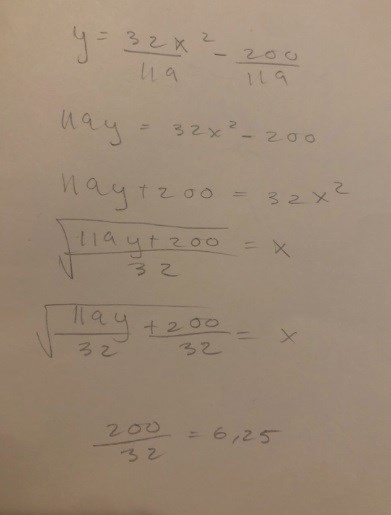 y = 32x²/119 - 200/119
119y = 32x² - 200
119y + 200 = 32x²
√((119y + 200)/32) = x
√(119y/32 + 200/32) = x
200/32 = 6,25